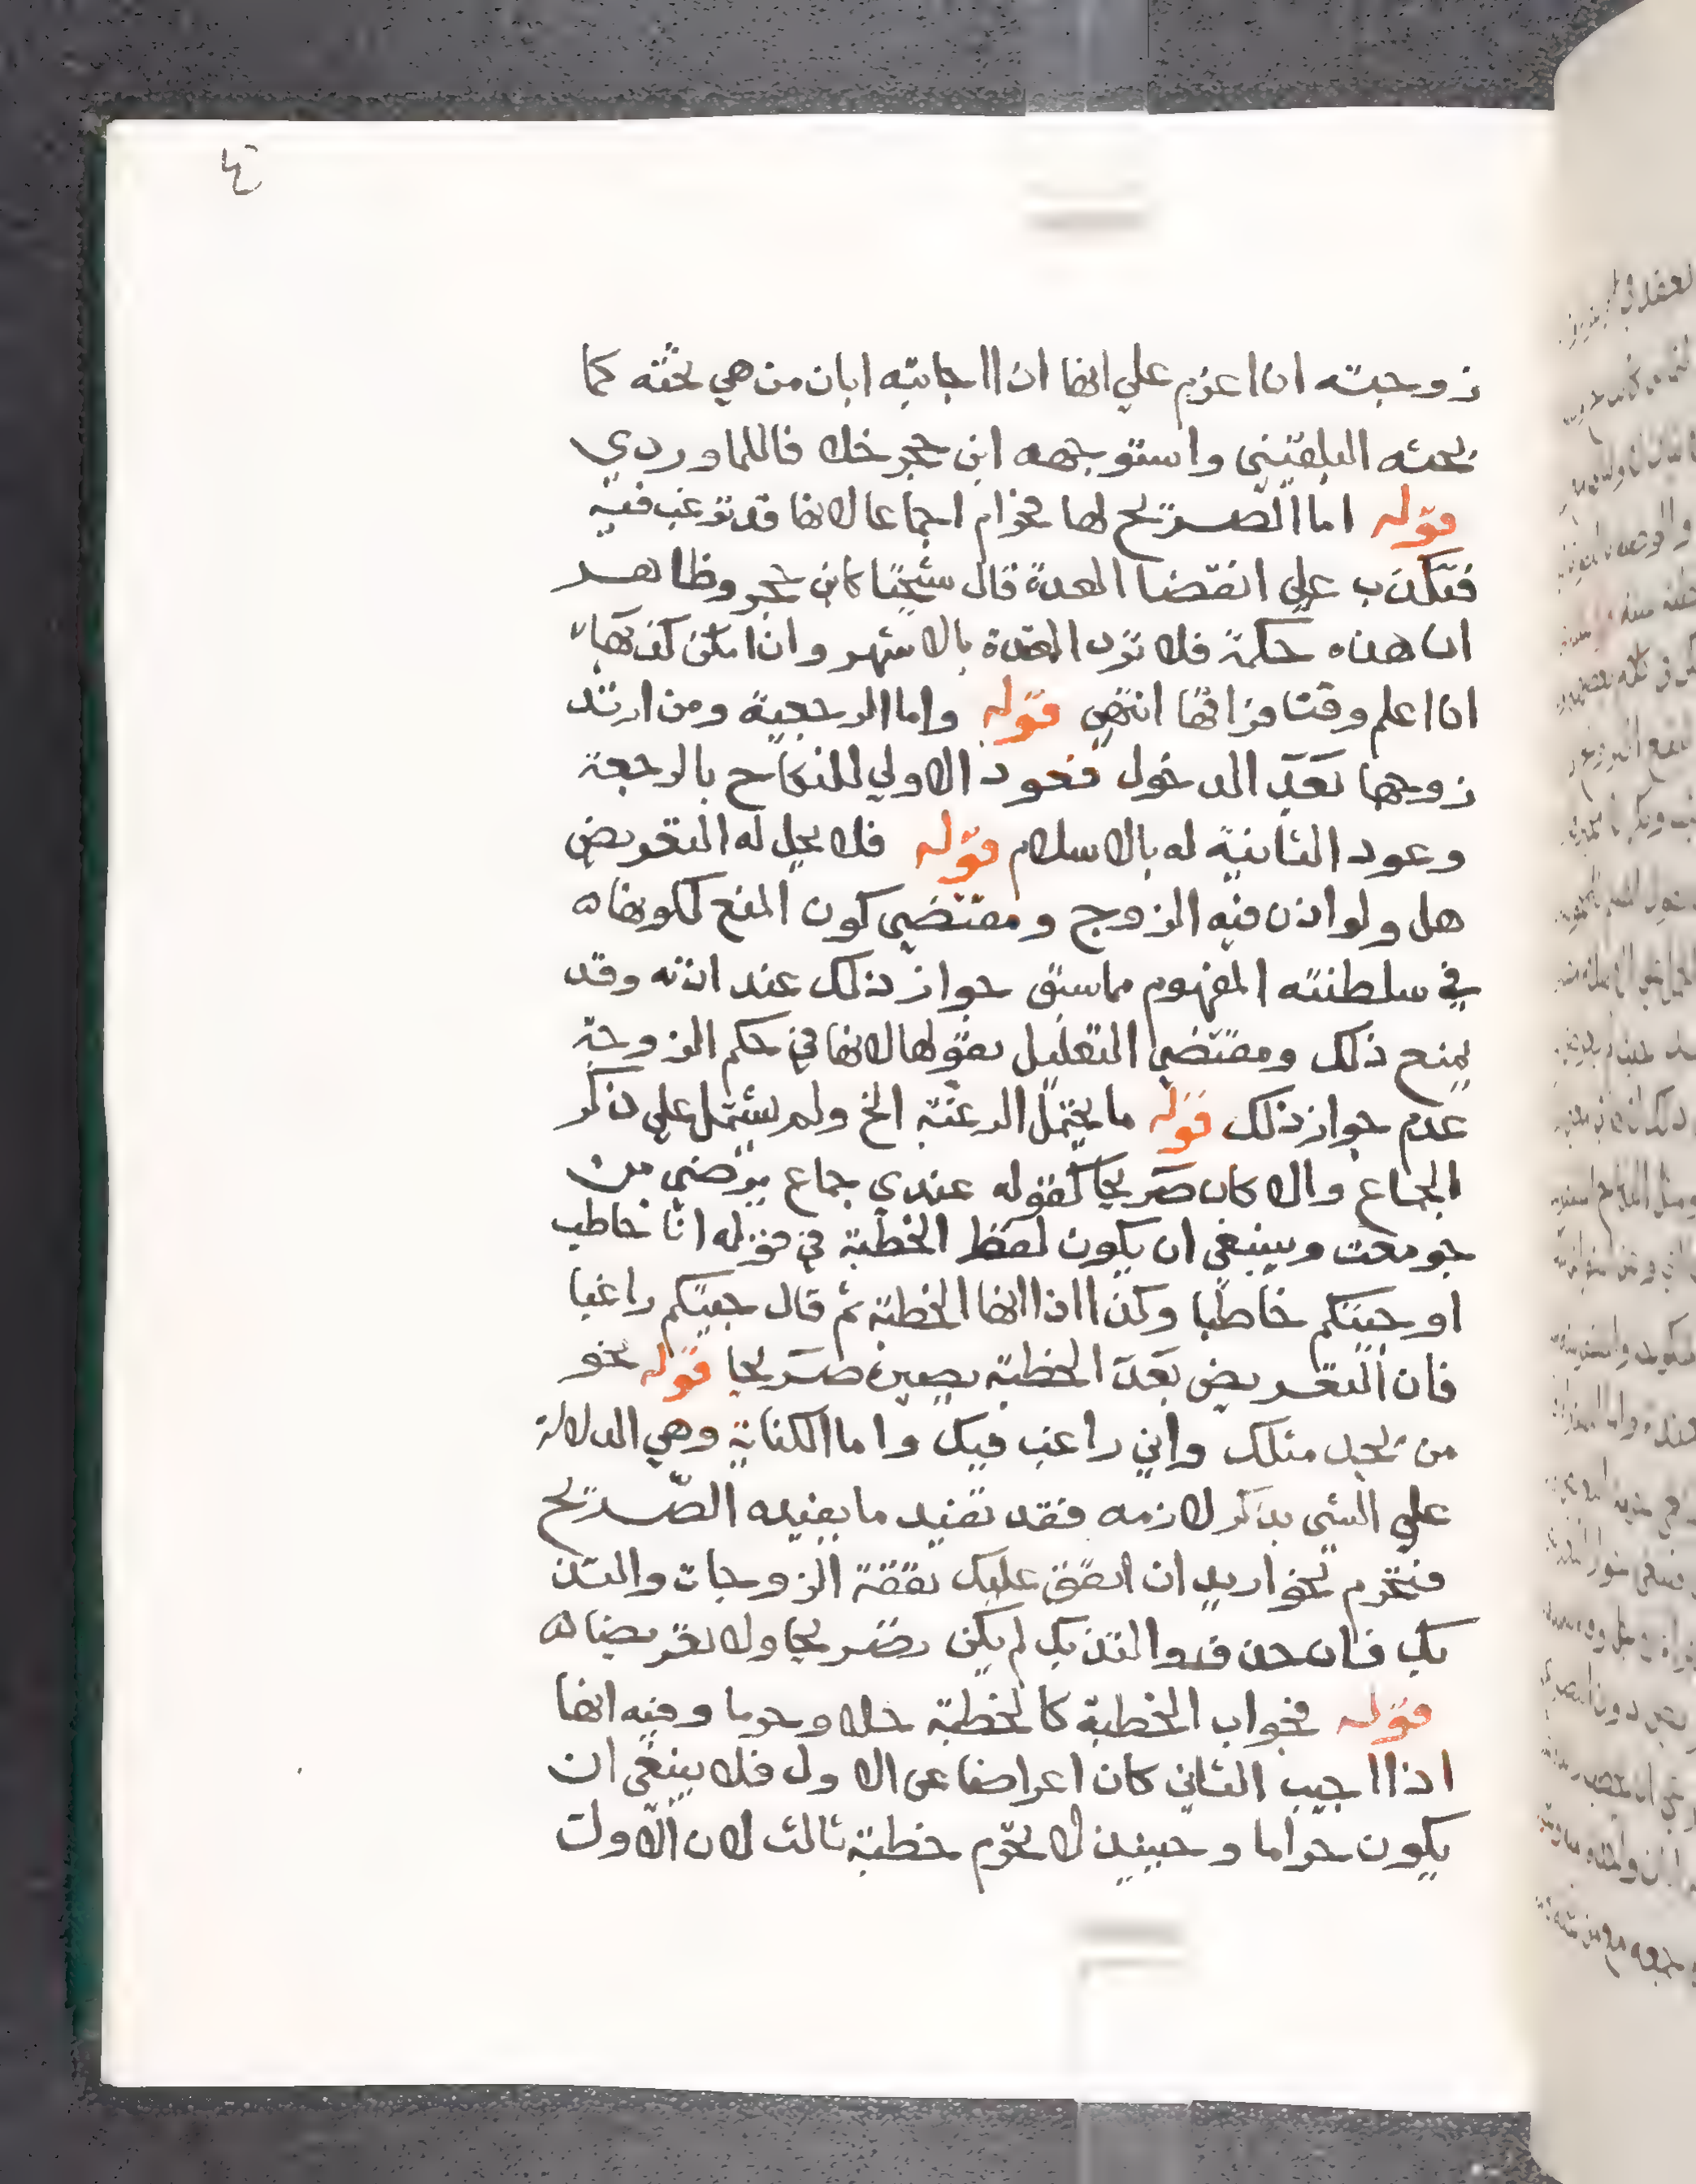 ٤
زوجته ان اعزم علي انها ان اجابته ابان من هي تحته كما
بحثه البلقيني واستوجهه ابن حجر خلافا للماوردي
قوله اما الصريح لها فحرام اجماعا لانها قد ترغب فيه
فتكذب علي انقضا العدة قال شيخنا كابن حجر وظاهر
ان هذه حكمة فلا ترد العدة بالاشهر وان امكن كذبها
ان اعلم وقت فراقها انتهي قوله واما الرجعية ومن ارتد
زوجها بعد الدخول فعود الاولي للنكاح بالرجعة
وعود الثانية له بالاسلام قوله فلا يحل له التعريض
هل ولو اذن فيه الزوج ومقتضي كون المنع لكونها
في سلطنته المفهوم مما سبق جواز ذلك عند اذنه وقد
يمنع ذلك ومقتضي التعليل بقولها لانها في حكم الزوجة
عدم جواز ذلك قوله ما يحتمل الرغبة الخ ولم يشتمل علي ذكر
الجماع والا كان صريحا كقوله عندي جماع يرضي من
جومعت وينبغي ان يكون لفظ الخطبة في قوله انا خاطب
او جيتكم خاطبا وكذا اذا الخطبة ثم قال جيتكم راغبا
فان التعريض بعد الخطبة يصير صريحا قوله نحو
من يجد مثلك واني راغب فيك واما الكناية وهي الدلالة
علي الشي بذكر لازمه فقد تفيد ما يفيده الصريح
فتحرم نحو اريد ان انفق عليك نفقة الزوجات والتذ
بك فان حذف والتذ بك لم يكن تصريحا ولا تعريضا
قوله فجواب الخطبة كالخطبة حلا وحرما وفيه انها
اذا اجيب الثاني كان اعراضا عن الاول فلا ينبغي ان
يكون حراما وحينيذ لا تحرم خطبة ثالث لان الاول